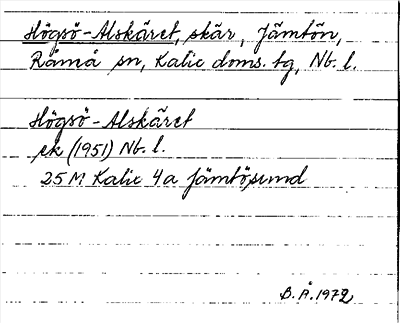 Högsö-Alskäret, skär, Jämtön,
Råneå sn, Kalix doms. tg, Nb. l.
Högsö-Alskäret
ek (1951) Nb. l.
25 M Kalix 4a Jämtösund
B. Å. 1972